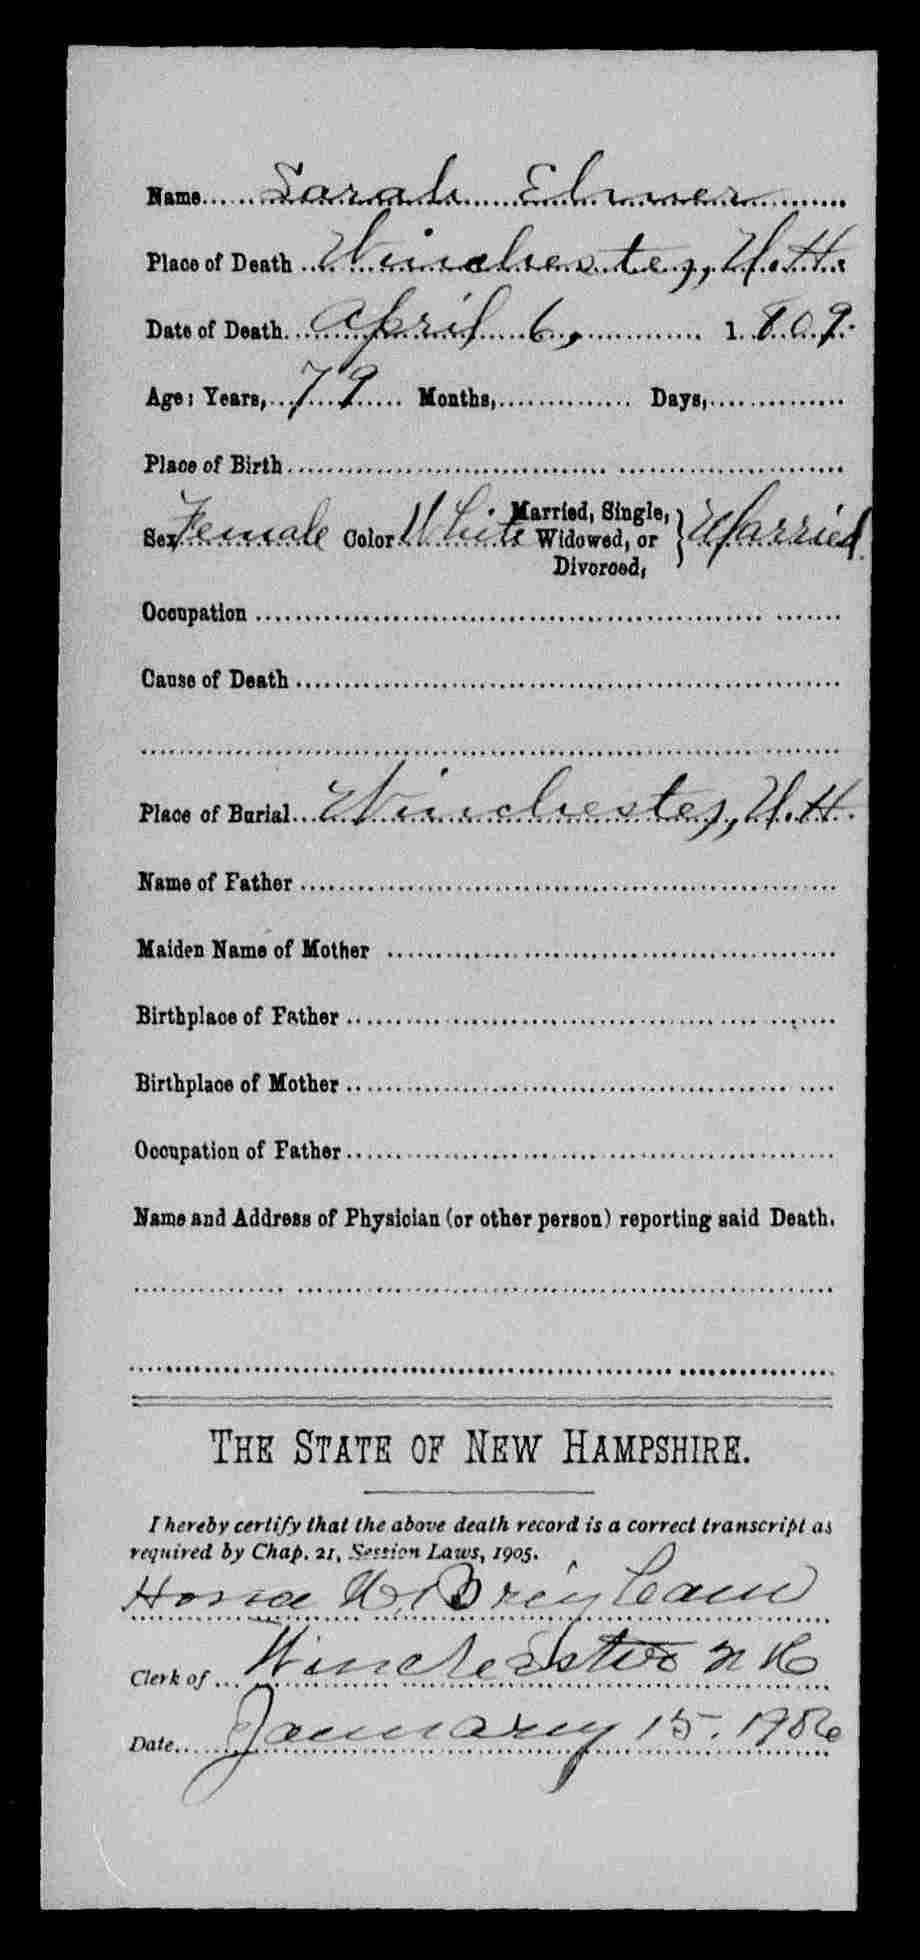 Name Sarah Elmer
Place of Death Winchester, N.H.
Date of Death April 6, 1809.
Age: Years, 79 Months, Days,
Place of Birth
Sex Female Color White Married, Single, Widowed, or Divorced, Married.
Occupation
Cause of Death
Place of Burial Winchester, N.H.
Name of Father
Maiden Name of Mother
Birthplace of Father
Birthplace of Mother
Occupation of Father
Name and Address of Physician (or other person) reporting said Death.
THE STATE OF NEW HAMPSHIRE.
I hereby certify that the above death record is a correct transcript as
required by Chap. 21, Session Laws, 1905.
Clerk of Winchester N H
Date January 15. 1906